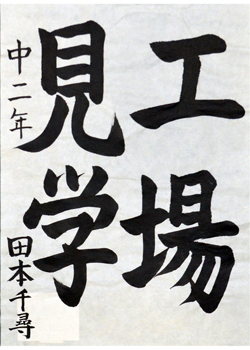 工場
見学
中二年
田本千尋